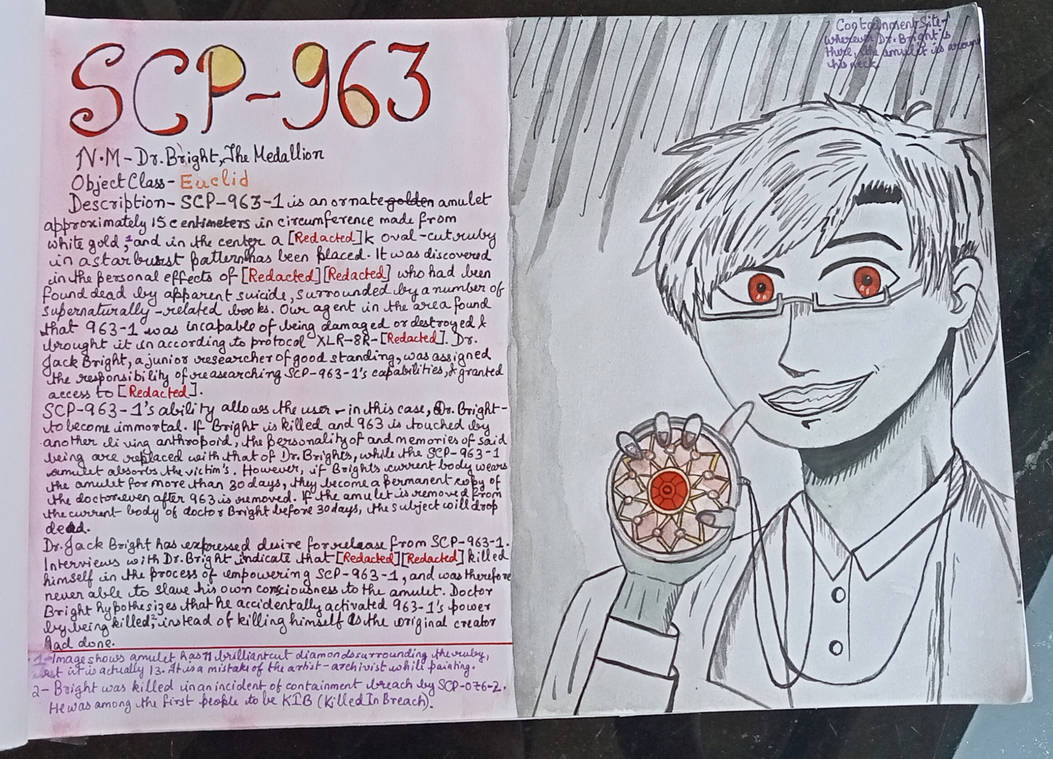 SCP-963
N.M - Dr. Bright, The Medallion
Object Class - Euclid
Description - SCP-963-1 is an ornate golden amulet
approximately 15 centimeters in circumference made from
white gold,¹ and in the center a [Redacted]k oval-cut ruby
in a starburst pattern has been placed. It was discovered
in the personal effects of [Redacted][Redacted] who had been
found dead by apparent suicide, surrounded by a number of
supernaturally-related books. Our agent in the area found
that 963-1 was incapable of being damaged or destroyed &
brought it in according to protocol XLR-8R-[Redacted]. Dr.
Jack Bright, a junior researcher of good standing, was assigned
the responsibility of reasearching SCP-963-1's capabilities, & granted
access to [Redacted].
SCP-963-1's ability allows the user - in this case, Dr. Bright -
to become immortal. If Bright is killed and 963 is touched by
another living anthropoid, the personality of and memories of said
being are replaced with that of Dr. Brights, while the SCP-963-1
amulet absorbs the victim's. However, if Brights current body wears
the amulet for more than 30 days, they become a permanent copy of
the doctor even after 963 is removed. If the amulet is removed from
the current body of doctor Bright before 30 days, the subject will drop
dead.
Dr. Jack Bright has expressed desire for release from SCP-963-1.
Interviews with Dr. Bright indicate that [Redacted][Redacted] killed
himself in the process of empowering SCP-963-1, and was therefore
never able to slave his own conciousness to the amulet. Doctor
Bright hypothesizes that he accidentally activated 963-1's power
by being killed,² instead of killing himself as the original creator
had done.
1- Image shows amulet has 11 brilliant cut diamonds surrounding the ruby,
but it is actually 13. It is a mistake of the artist-archivist while painting.
2- Bright was killed in an incident of containment breach by SCP-076-2.
He was among the first people to be KIB (Killed In Breach).
Containment Site -
Wherever Dr. Bright is
there, the amulet is around
his neck